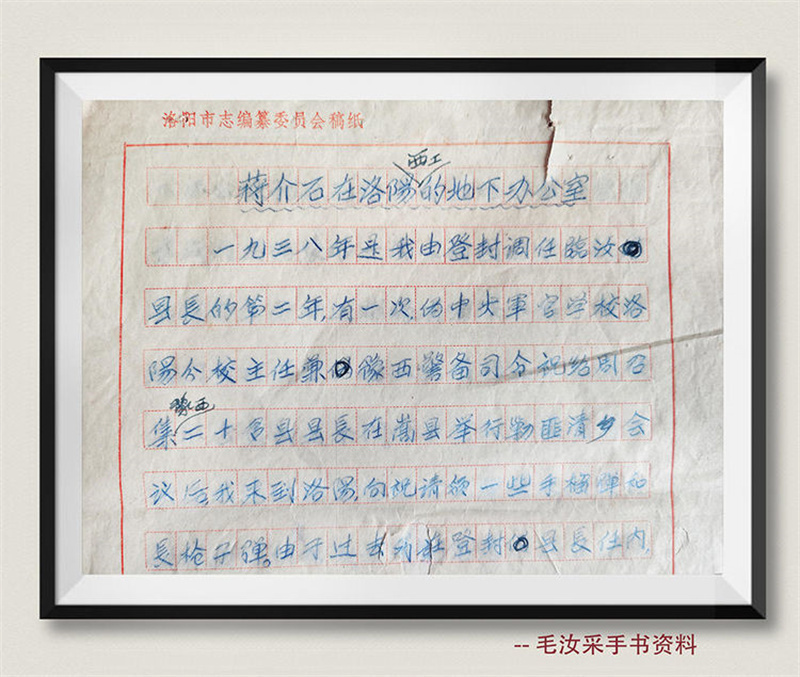 洛阳市志编纂委员会稿纸
蒋介石在洛陽西工的地下办公室
一九三八年是我由登封调任臨汝
县長的第二年,有一次,伪中央軍官学校洛
陽分校主任兼豫西警备司令祝绍周召
集豫西二十名县县長在嵩县举行剿匪清乡会
议后我来到洛陽,向祝请领一些手榴弹和
長枪子弹。由于过去我在登封县長任内,
-- 毛汝采手书资料